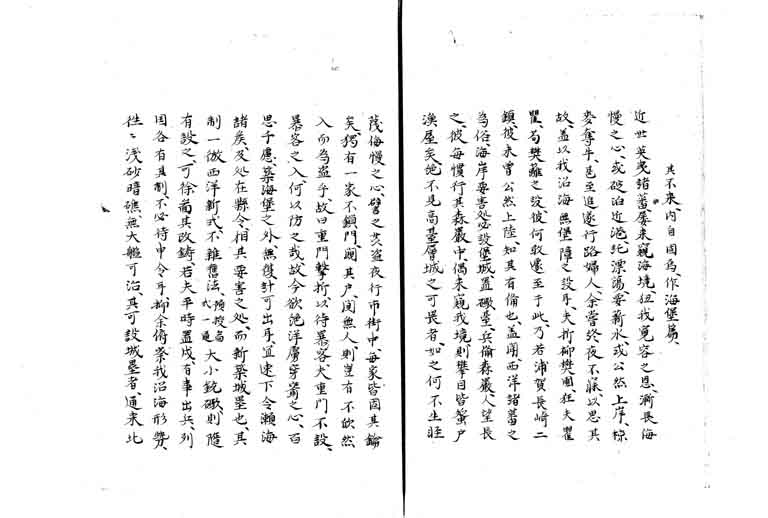 其不来、内自固為、作海堡篇、
近世英夷諸蕃屡来窺海境、狃我寛容之恩、漸長侮
慢之心、或碇泊近港、託漂蕩要薪水、或公然上岸、掠
麥奪牛、甚至追逐行路婦人、余嘗終夜不寐以思其
故、蓋以我沿海無堡障之設耳、夫折柳樊圃狂夫瞿
瞿、苟樊籬之設、彼何敢遽至于此、乃若浦賀長崎二
鎮彼未嘗公然上陸、知其有備也、蓋聞、西洋諸蕃之
為俗、海岸要害処必設堡城置礮壘、兵備森厳、人望長
之、彼毎慣行其森厳中、偶来窺我境、則擧目皆蜑戸
漁屋矣、絶不見高臺層城之可畏者、如之何不生驻
茂侮慢之心、譬之汝盗夜行市街中、毎家皆固其鑰
矣、獨有一家不鎖門、闢其戸、閴無人、則豈有不欣然
入而為盗乎、故曰重門撃柝、以待暴客、夫重門不設、
暴客之入、何以防之哉、故今欲絶洋虜穿窬之心、百
思千慮、築海堡之外、無復計可出耳、宜速下令瀕海
諸矦及処在縣令、相其要害之処、而新築城壘也、其
制一倣西洋新式、不雜舊法、大小銃礮、則隨
有設之、可徐啚其改鋳、若夫平時置戍、有事出兵、列
國各有其制、不必待申令耳、抑余傍察我沿海形勢、
往々淺砂暗礁、無大艦可泊、其可設城壘者、通東北